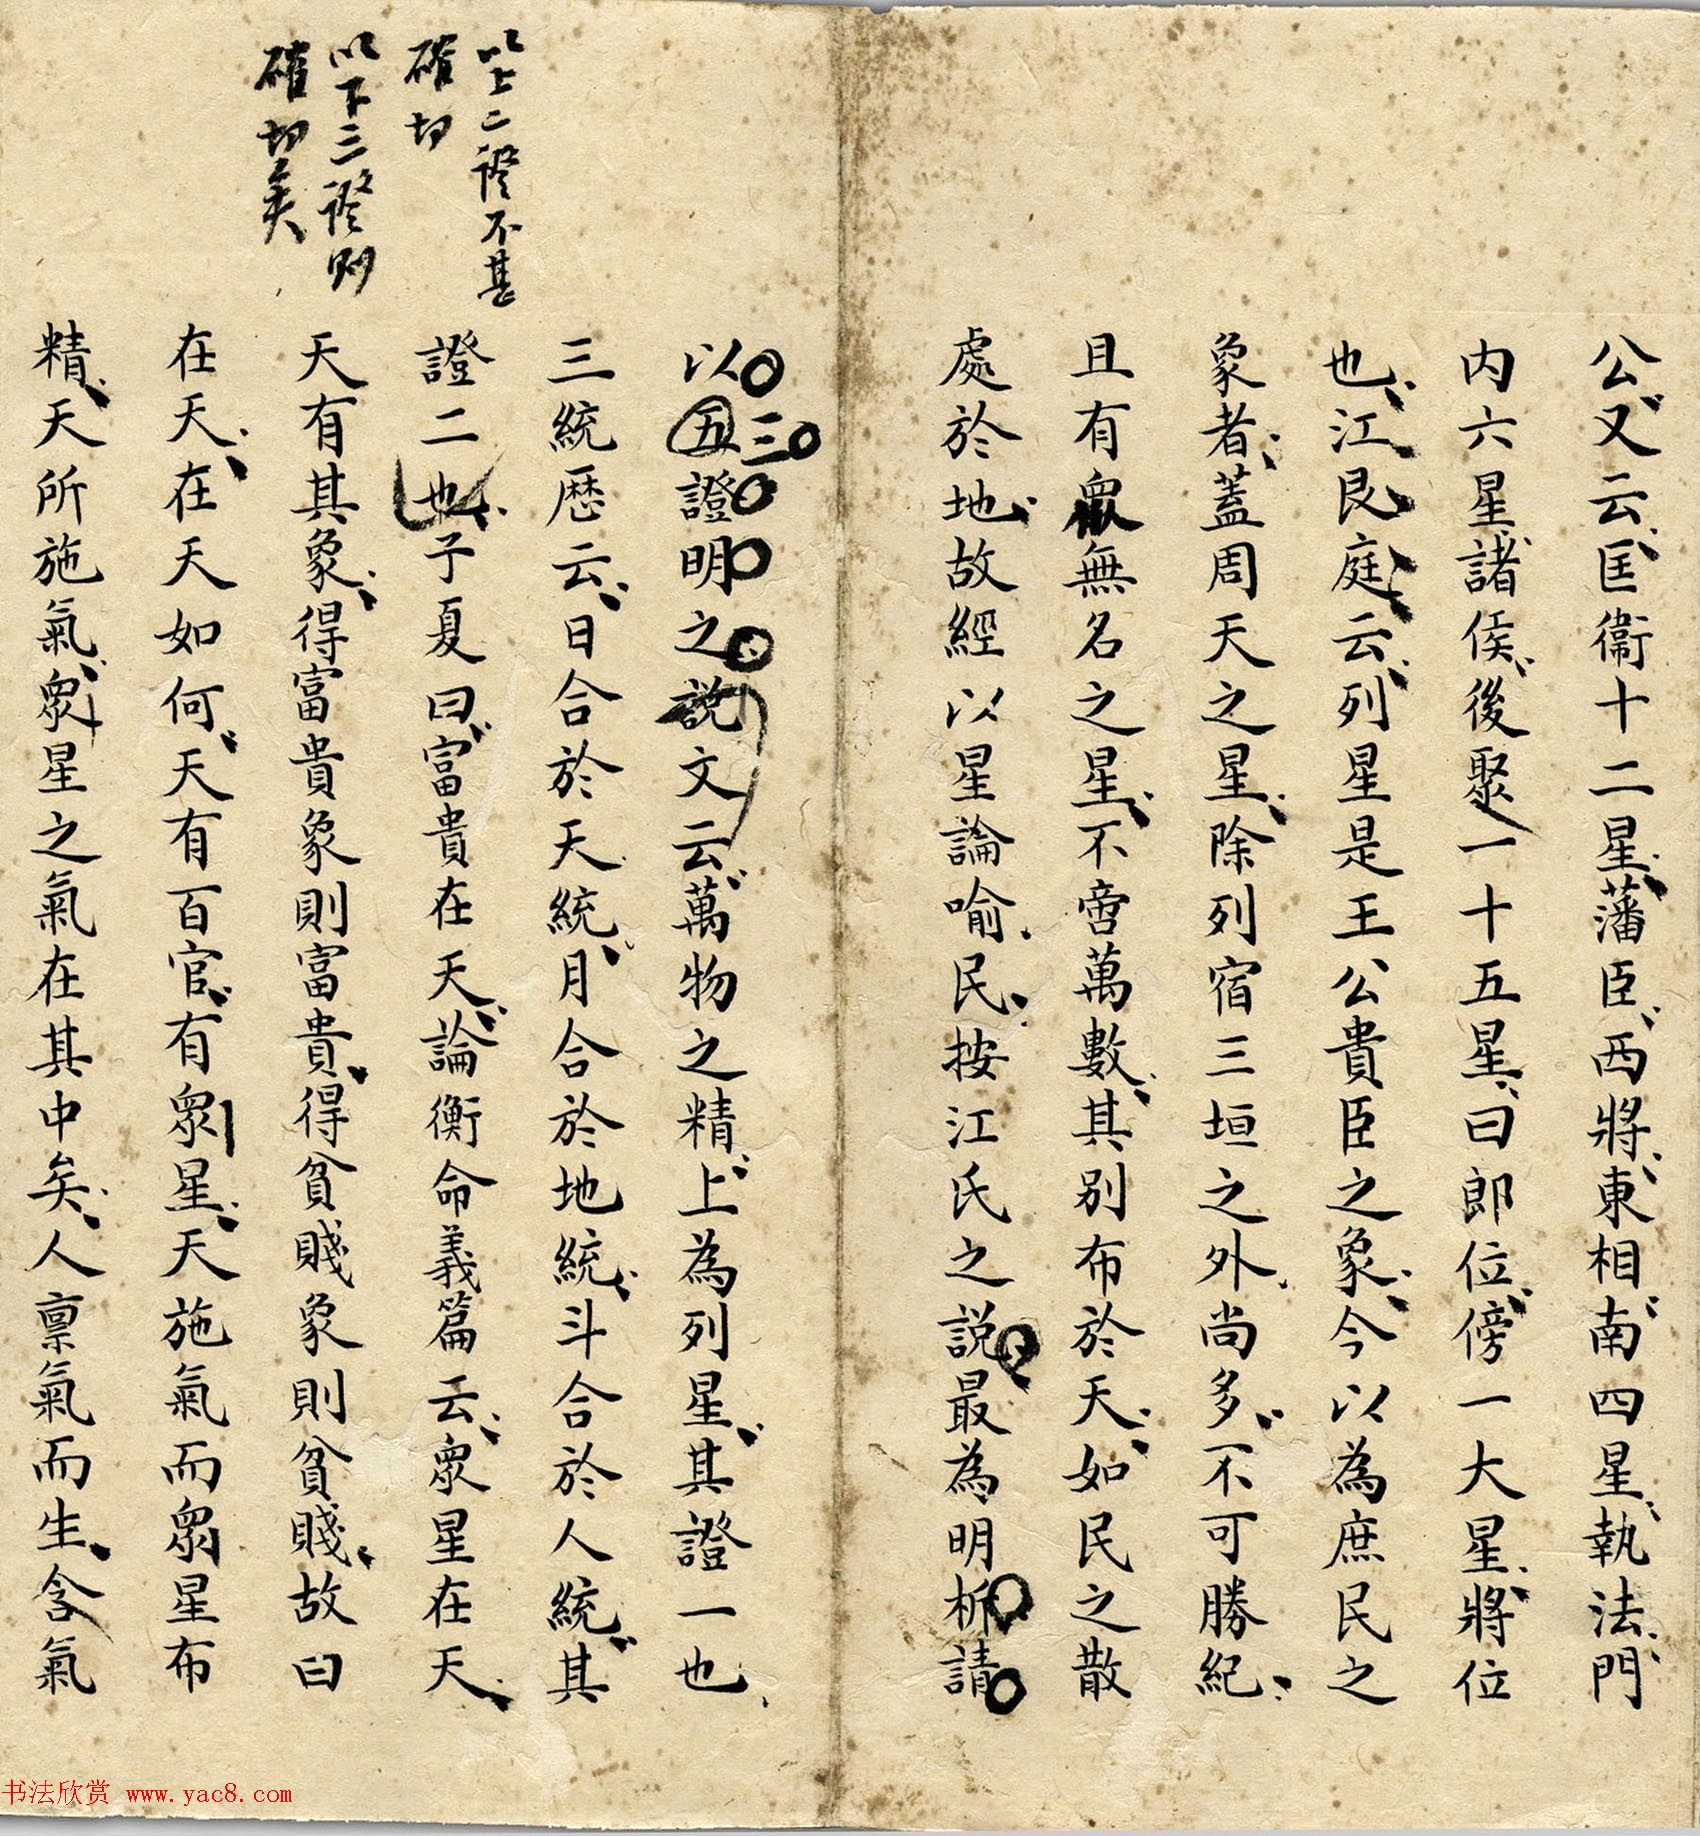 公又云匡衞十二星藩臣西將東相南四星執法門
内六星諸侯後聚一十五星曰郎位傍一大星將位
也江艮庭云列星是王公貴臣之象今以為庶民之
象者蓋周天之星除列宿三垣之外尚多不可勝紀
且有衆無名之星不啻萬數其別布於天如民之散
處於地故經以星論喻民按江氏之説最為明析請
以五證明之説文云萬物之精上為列星其證一也
三
三統歴云日合於天統月合於地統斗合於人統其
證二也子夏曰富貴在天論衡命義篇云衆星在天
天有其象得富貴象則富貴得貧賤象則貧賤故曰
在天在天如何天有百官有衆星天施氣而衆星布
精天所施氣衆星之氣在其中矣人禀氣而生含氣
以上二證不甚
確切
以下三證則
確切矣
书法欣赏 www.yac8.com